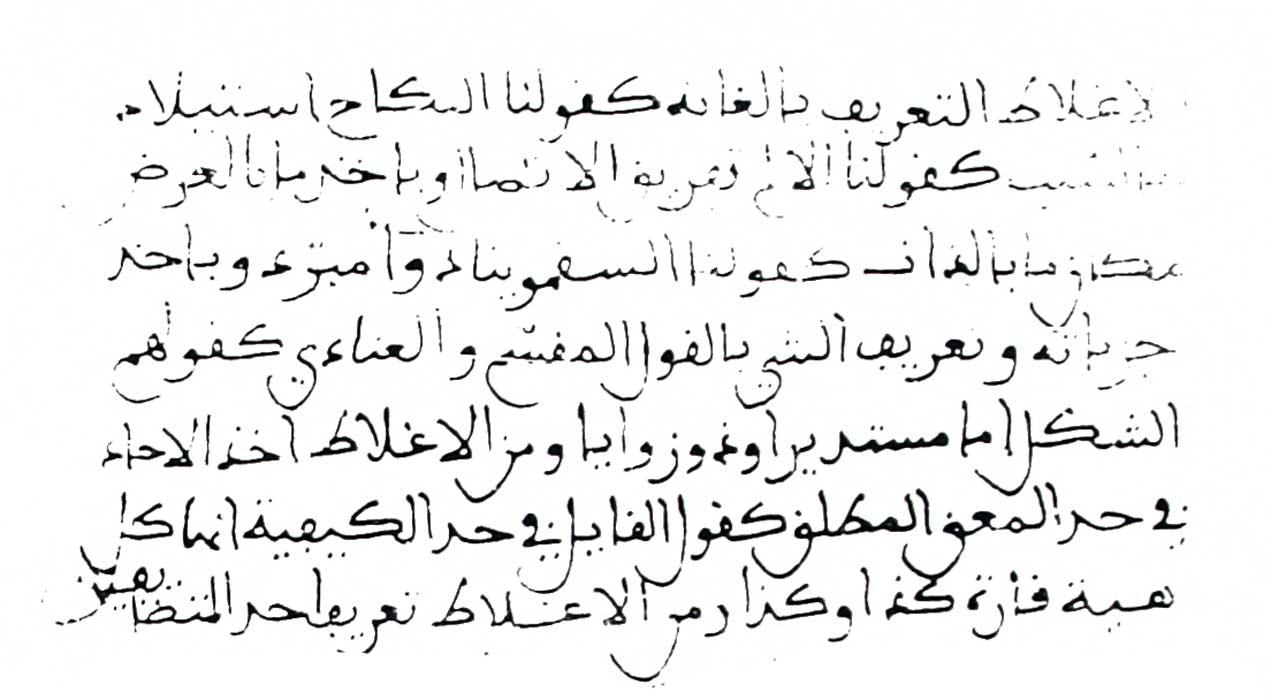 الاغلاط التعريف بالغاية كقولنا النكاح استيلاد
بالسبب كقولنا الالم تعريف الاتصال وباخذ ما بالعرض
مكان ما بالذات كقولنا السقمونيا دواء مبرد وباخذ
جزياته وتعريف الشي بالقول المقسم والعنادي كقولهم
الشكل اما مستدير او ذو زوايا ومن الاغلاط اخذ الاحاد
في حد المعنى المطلق كقول القايل في حد الكيفية انها كل
هيية قارة كذا وكذا ومن الاغلاط تعريف احد المتضايفين